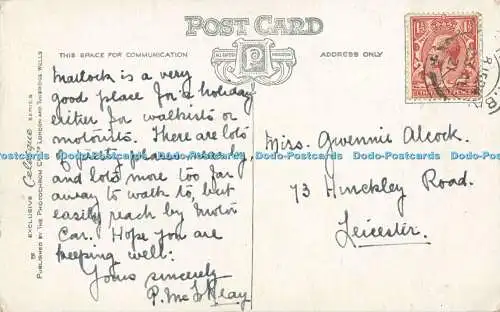 POST CARD
THIS SPACE FOR COMMUNICATION
ADDRESS ONLY
Matlock is a very
good place for a holiday
either for walkists or
motorists. There are lots
of pretty places nearby,
and lots more too far
away to walk to, but
easily reach by Motor
Car. Hope you are
keeping well:
Yours sincerely
P. Mc
Miss. Gwennie Alcock
73 Hinckley Road.
Leicester.
EXCLUSIVE Celesque SERIES
PUBLISHED BY THE PHOTOCHROM CO. LTD LONDON AND TUNBRIDGE WELLS
Dodo-Postcards Dodo-Postcards Dodo-Postcards Dodo-Postcards Dodo-Postcards Dodo-Postcards